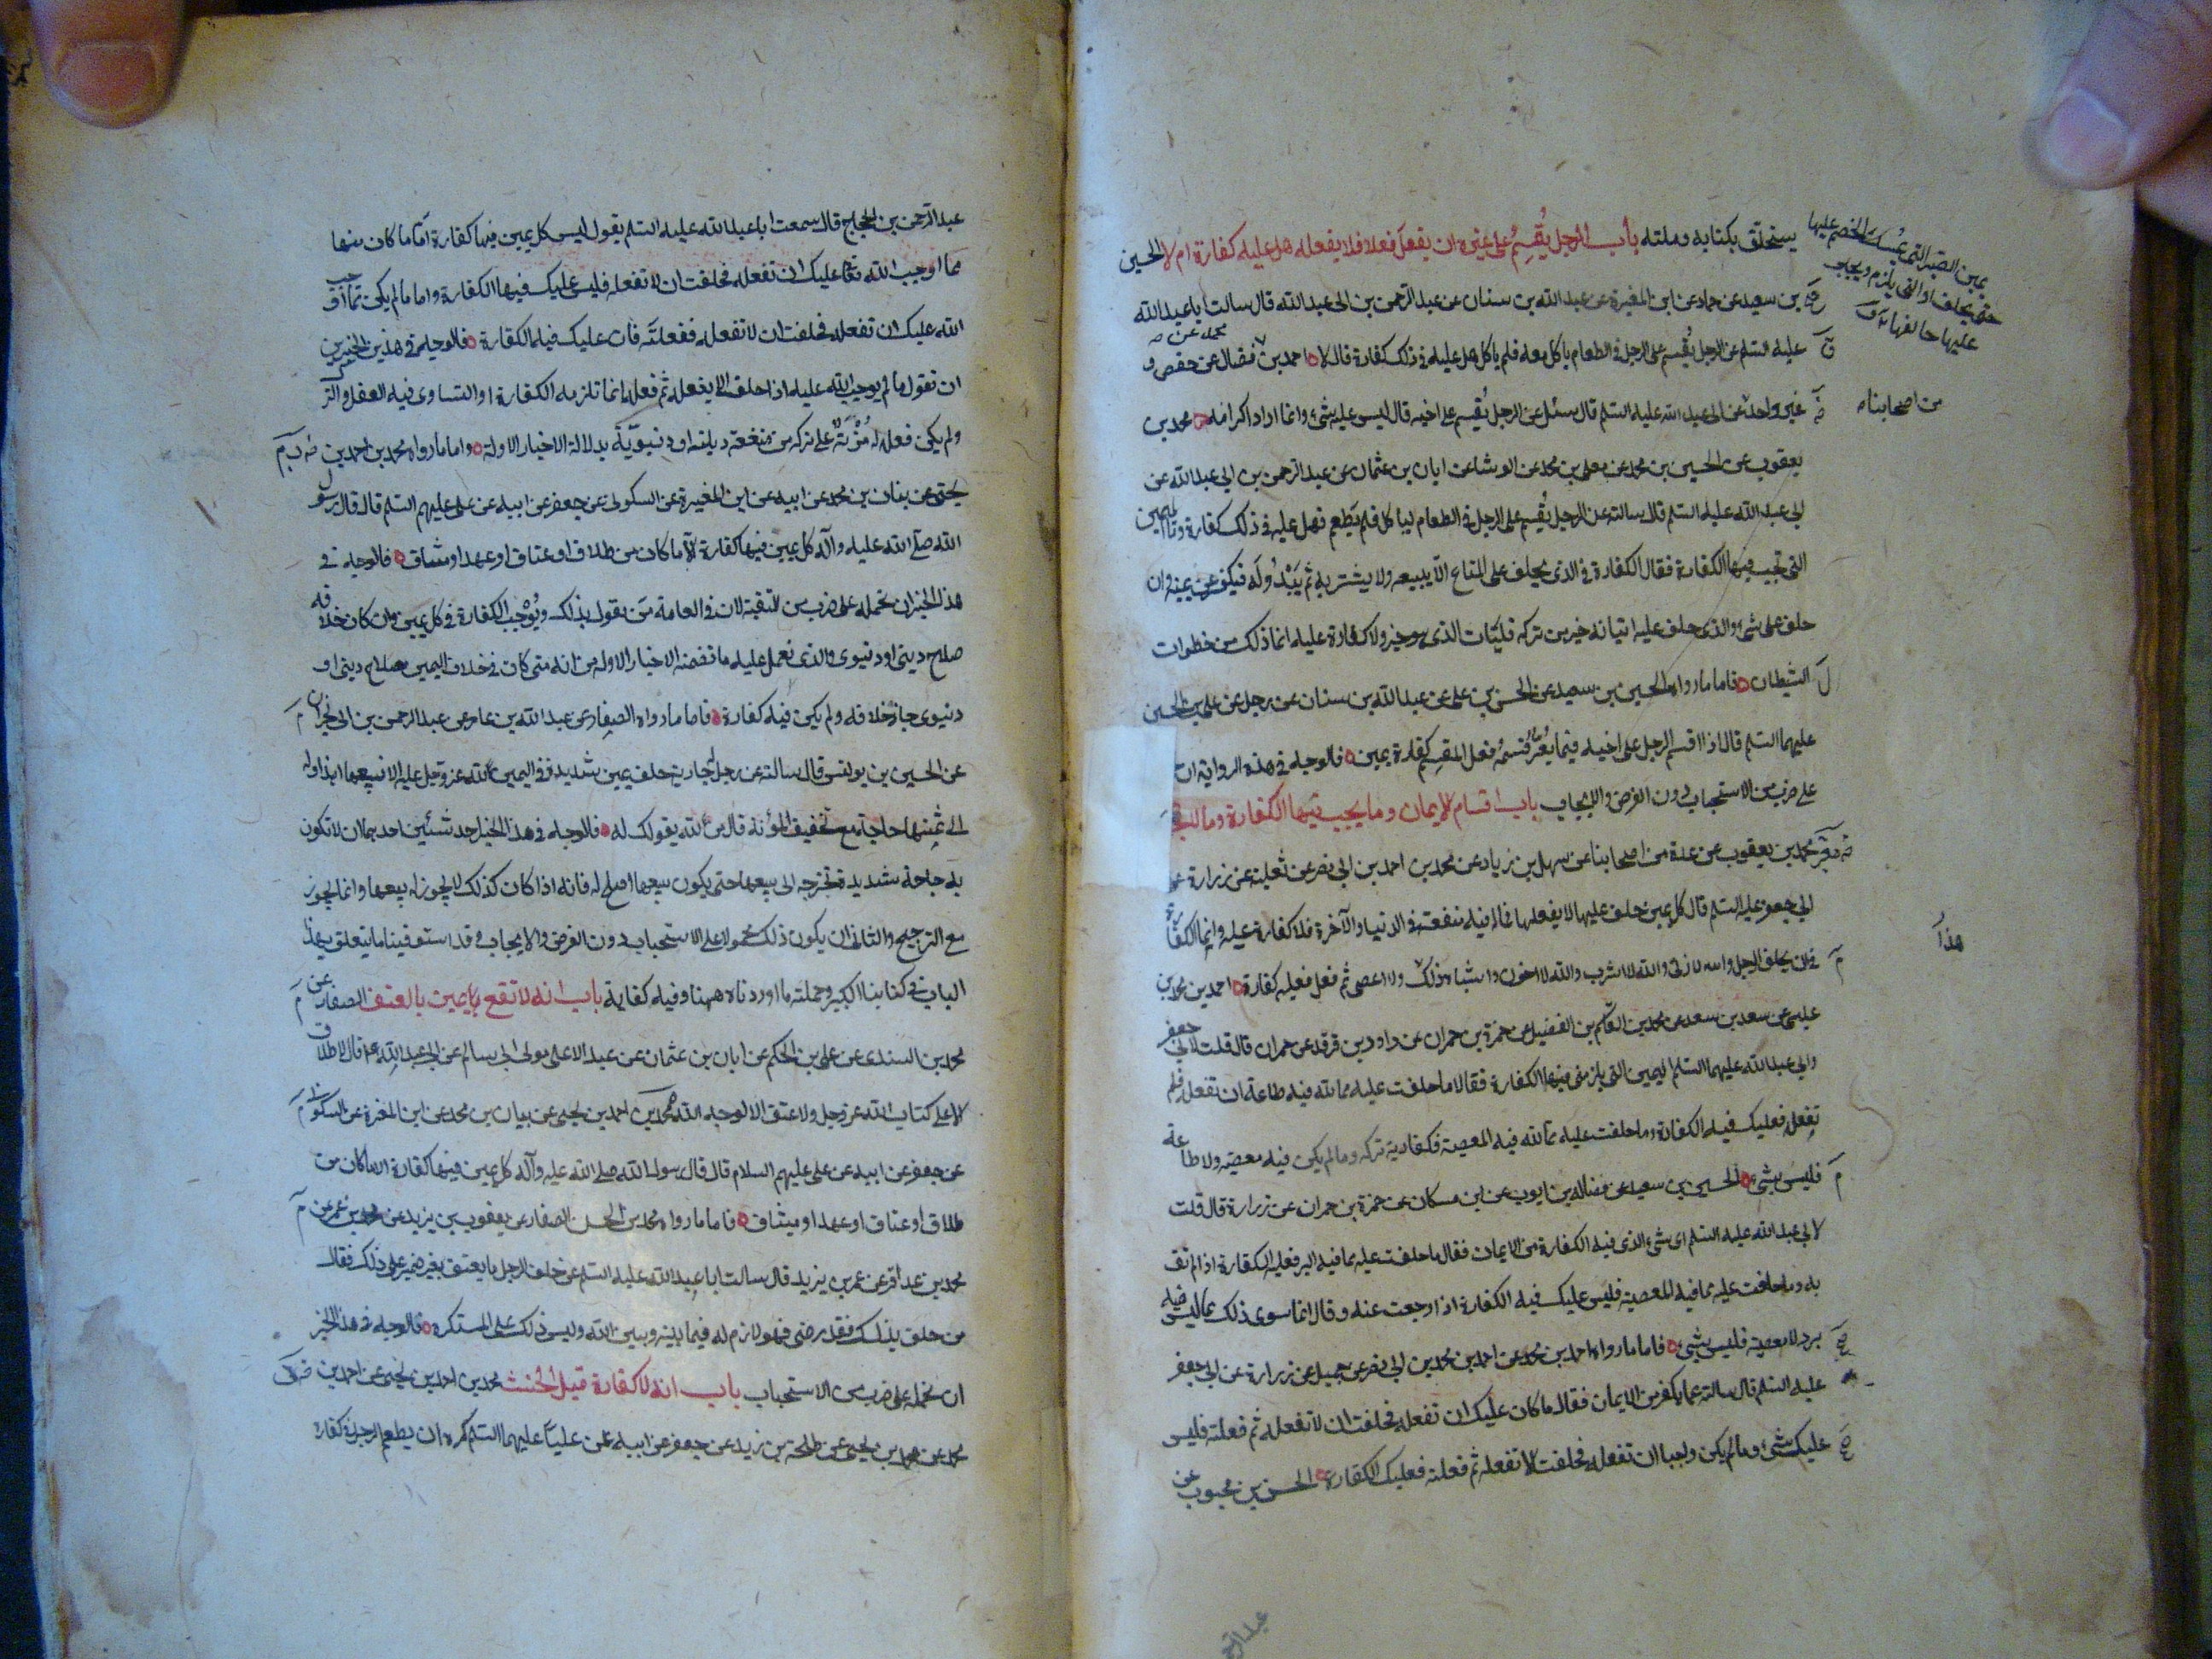 يستحلق بكتابه وملته باب الرجل يُقسِمُ على غيره ان يفعل فعلا فلا يفعله هل عليه كفارة ام لا الحسين
بن سعيد عن حماد عن ابن المغيرة عن عبد الله بن سنان عن عبد الرحمن بن ابى عبد الله قال سالت ابا عبد الله
عليه السلم عن الرجل يُقسم على الرجل فى الطعام ياكل معه فلم ياكل هل عليه فى ذلك كفارة قال لا احمد بن فضال عن حفص و
غير واحد عن ابى عبد الله عليه السلم قال سئل عن الرجل يُقسم على اخيه قال ليس عليه شئ وانما اراد اكرامه محمد بن
يعقوب عن الحسين بن محمد عن معلى بن محمد عن الوشا عن ابان بن عثمان عن عبد الرحمن بن ابي عبد الله عن
ابى عبد الله عليه السلم قال سالته عن الرجل يُقسم على الرجل فى الطعام لياكل فلم يَطعم فهل عليه فى ذلك كفارة وما اليمين
التى تجب فيها الكفارة فقال الكفارة فى الذى يحلف على المتاع الّا يبيعه ولا يشتريه ثم يَبْدُو لَه فيكفر عن يمينه وان
حلف على شئ والذى حلف عليه اتيانه خير من تركه فليَات الذى هو خير ولا كفارة عليه انما ذلك من خطوات
الشيطان فاما ما رواه الحسين بن سعيد عن الحسن بن على عن عبد الله بن سنان عن رجل عن على بن الحسين
عليهما السلم قال اذا اقسم الرجل على اخيه فلم يُبرّ قسمُه فعلى المقسِم كفارة يمين فالوجه فى هذه الرواية ان
على ضرب من الاستحباب دون الفرض والايجاب باب اقسام الايمان وما يجب فيها الكفارة وما لا يجب
محمد بن يعقوب عن عدة من اصحابنا عن سهل بن زياد عن محمد بن احمد بن ابى نصر عن ثعلبة عن زرارة عن
ابي جعفر عليه السلم قال كل يمين حلف عليها لا يفعلها مما له فيه منفعة فى الدنيا والآخرة فلا كفارة عليه وانما الكفارة
فى ان يحلف الرجل والله لا ازنى والله لا اشرب والله لا اخون واشباه ذلك ولا اعصى ثم فعل فعليه كفارة احمد بن محمد بن
عيسى عن سعد بن سعد عن محمد بن القسم بن الفضيل عن حمزة بن حمران عن داود بن فرقد عن حمران قال قلت لابى جعفر
وابي عبد الله عليهما السلم اليمين التى يلزمنى فيها الكفارة فقالا ما حلفت عليه مما لله فيه طاعة ان تفعله فلم
تفعله فعليك فيه الكفارة وما حلفت عليه مما لله فيه المعصية فكفارته تركه وما لم يكن فيه معصية ولا طاعة
فليس بشئ الحسين بن سعيد عن فضالة بن ايوب عن ابن مسكان عن حمزة بن حمران عن زرارة قال قلت
لابي عبد الله عليه السلم اى شئ الذى فيه الكفارة من الايمان فقال ما حلفت عليه مما فيه البر فعليه الكفارة اذا لم تف
به وما حلفت عليه مما فيه المعصية فليس عليك فيه الكفارة اذا رجعت عنه وقال انما سوى ذلك مما ليس فيه
بر ولا معصية فليس بشئ فاما ما رواه احمد بن محمد عن احمد بن محمد بن ابى نصر عن جميل عن زرارة عن ابي جعفر
عليه السلم قال سالته عما يكفر من الايمان فقال ما كان عليك ان تفعله فحلفت ان لا تفعله ثم فعلته فليس
عليك شئ وما لم يكن واجبا ان تفعله فحلفت الا تفعله ثم فعلته فعليك الكفارة الحسن بن محبوب عن
يمين الصبر التى يُمسك الخصم عليها
حتى يحلف او التى يلزم ويجبر
عليها حالفها ق
من اصحابنا
هذا
عبد الرحمن بن الحجاج قال سمعت ابا عبد الله عليه السلم يقول ليس كل يمين فيها كفارة اَمّا ما كان منها
مما اوجب الله تعا عليك ان تفعله فحلفت ان لا تفعله فليس عليك فيها الكفارة واما ما لم يكن مما اوجب
الله عليك ان تفعله فحلفت ان لا تفعله ففعلتَه فان عليك فيه الكفارة فالوجه فى هذين الخبرين
ان نقول ما لم يوجب الله عليه اذا حلف الا يفعله ثم فعله انما تلزمه الكفارة اذا تساوى فيه الفعل والترك
ولم يكن فعله له مَزيّة على تركه من منفعة دينية او دنيويّة بدلالة الاخبار الاولة واما ما رواه محمد بن احمد بن
يحيى عن بنان بن محمد عن ابيه عن ابن المغيرة عن السكونى عن جعفر عن ابيه عن على عليهم السلم قال قال رسول
الله صلى الله عليه وآله كل يمين فيها كفارة الا ما كان من طلاق او عتاق او عهد او ميثاق فالوجه فى
هذا الخبر ان نحمله على ضرب من التقية لان فى العامة مَن يقول بذلك ويُوْجِب الكفارة فى كل يمين وان كان خلافه
صلاح دينى او دنيوى والذى نعمل عليه ما تضمنه الاخبار الاولة من انه متى كان فى خلاف اليمين صلاح دينى او
دنيوى جاز خلافه ولم يكن فيه كفارة فاما ما رواه الصفار عن عبد الله بن عامر عن عبد الرحمن بن ابى نجران
عن الحسين بن يونس قال سالته عن رجل له جارية حلف بيمين شديدة فى اليمين لله عز وجل عليه الا يبيعها ابدا وله
الى ثمنها حاجة مع تخفيف المؤنة قال فِ لله بقولك له فالوجه فى هذا الخبر احد شيئين احدهما ان لا تكون
به حاجة شديدة تخرجه الى بيعها حتى يكون بيعها اصلح له فانه اذا كان كذلك لا يجوز له بيعها وانما يجوز
مع الترجيح والثانى ان يكون ذلك محمولا على الاستحباب دون الفرض والايجاب وقد استوفينا ما يتعلق بهذا
الباب فى كتابنا الكبير وجملته ما اوردناه ههنا وفيه كفاية باب انه لا تقع يمين بالعتق الصفار عن
محمد بن السندى عن على بن الحكم عن ابان بن عثمان عن عبد الاعلى مولى ال سالم عن ابى عبد الله ع قال لا طلاق
الا على كتاب الله عز وجل ولا عتق الا لوجه الله محمد بن احمد بن يحيى عن بنان بن محمد عن ابن المغيرة عن السكونى
عن جعفر عن ابيه عن على عليهم السلام قال قال رسول الله صلى الله عليه وآله كل يمين فيها كفارة الا ما كان من
طلاق او عتاق او عهد او ميثاق فاما ما رواه محمد بن الحسن الصفار عن يعقوب بن يزيد عن محمد بن عمر عن
محمد بن عذافر عن عمر بن يزيد قال سالت ابا عبد الله عليه السلم عن حلف الرجل بالعتق بغير ضمير على ذلك فقال
من حلف بذلك فقد رضى فهو لازم له فيما بينه وبين الله وليس ذلك على المستكره فالوجه فى هذا الخبر
ان نحمله على ضرب من الاستحباب باب انه لا كفارة قبل الحنث محمد بن احمد بن يحيى عن احمد بن
محمد عن محمد بن يحيى عن طلحة بن زيد عن جعفر عن ابيه عن علياً عليهما السلم كره ان يطعم الرجل فى كفارة